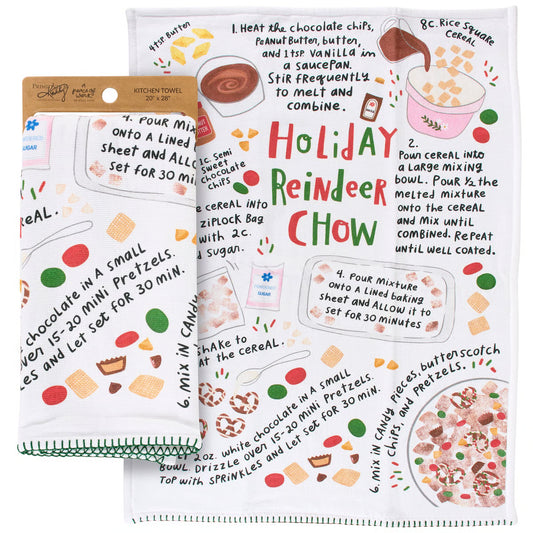 PRIMITIVES
Kathy
KITCHEN TOWEL
20" x 28"
4. Pour Mix
onto a Lined
sheet and Allow
set for 30 min
SUGAR
eal.
chocolate in a small
oven 15-20 Mini Pretzels.
les and Let Set for 30 min.
6. Mix in Candy
4 tsp. Butter
1. Heat the chocolate chips,
Peanut Butter, butter,
and 1 tsp Vanilla in
a saucepan.
Stir Frequently
to melt and
combine.
8c. Rice Square
Cereal
1c. Semi
Sweet
Chocolate
chips
Holiday
Reindeer
Chow
2.
Pour cereal into
a large mixing
bowl. Pour ½ the
melted mixture
onto the cereal
and Mix until
combined. Repeat
until well coated.
e cereal into
ziplock Bag
with 2c.
d Sugar.
SUGAR
4. Pour Mixture
onto a Lined baking
sheet and Allow it to
set for 30 minutes
shake to
at the cereal.
2 oz. white chocolate in a small
bowl. Drizzle oven 15-20 Mini Pretzels.
Top with Sprinkles and Let Set for 30 min.
6. Mix in Candy pieces, butterscotch
chips, and pretzels.